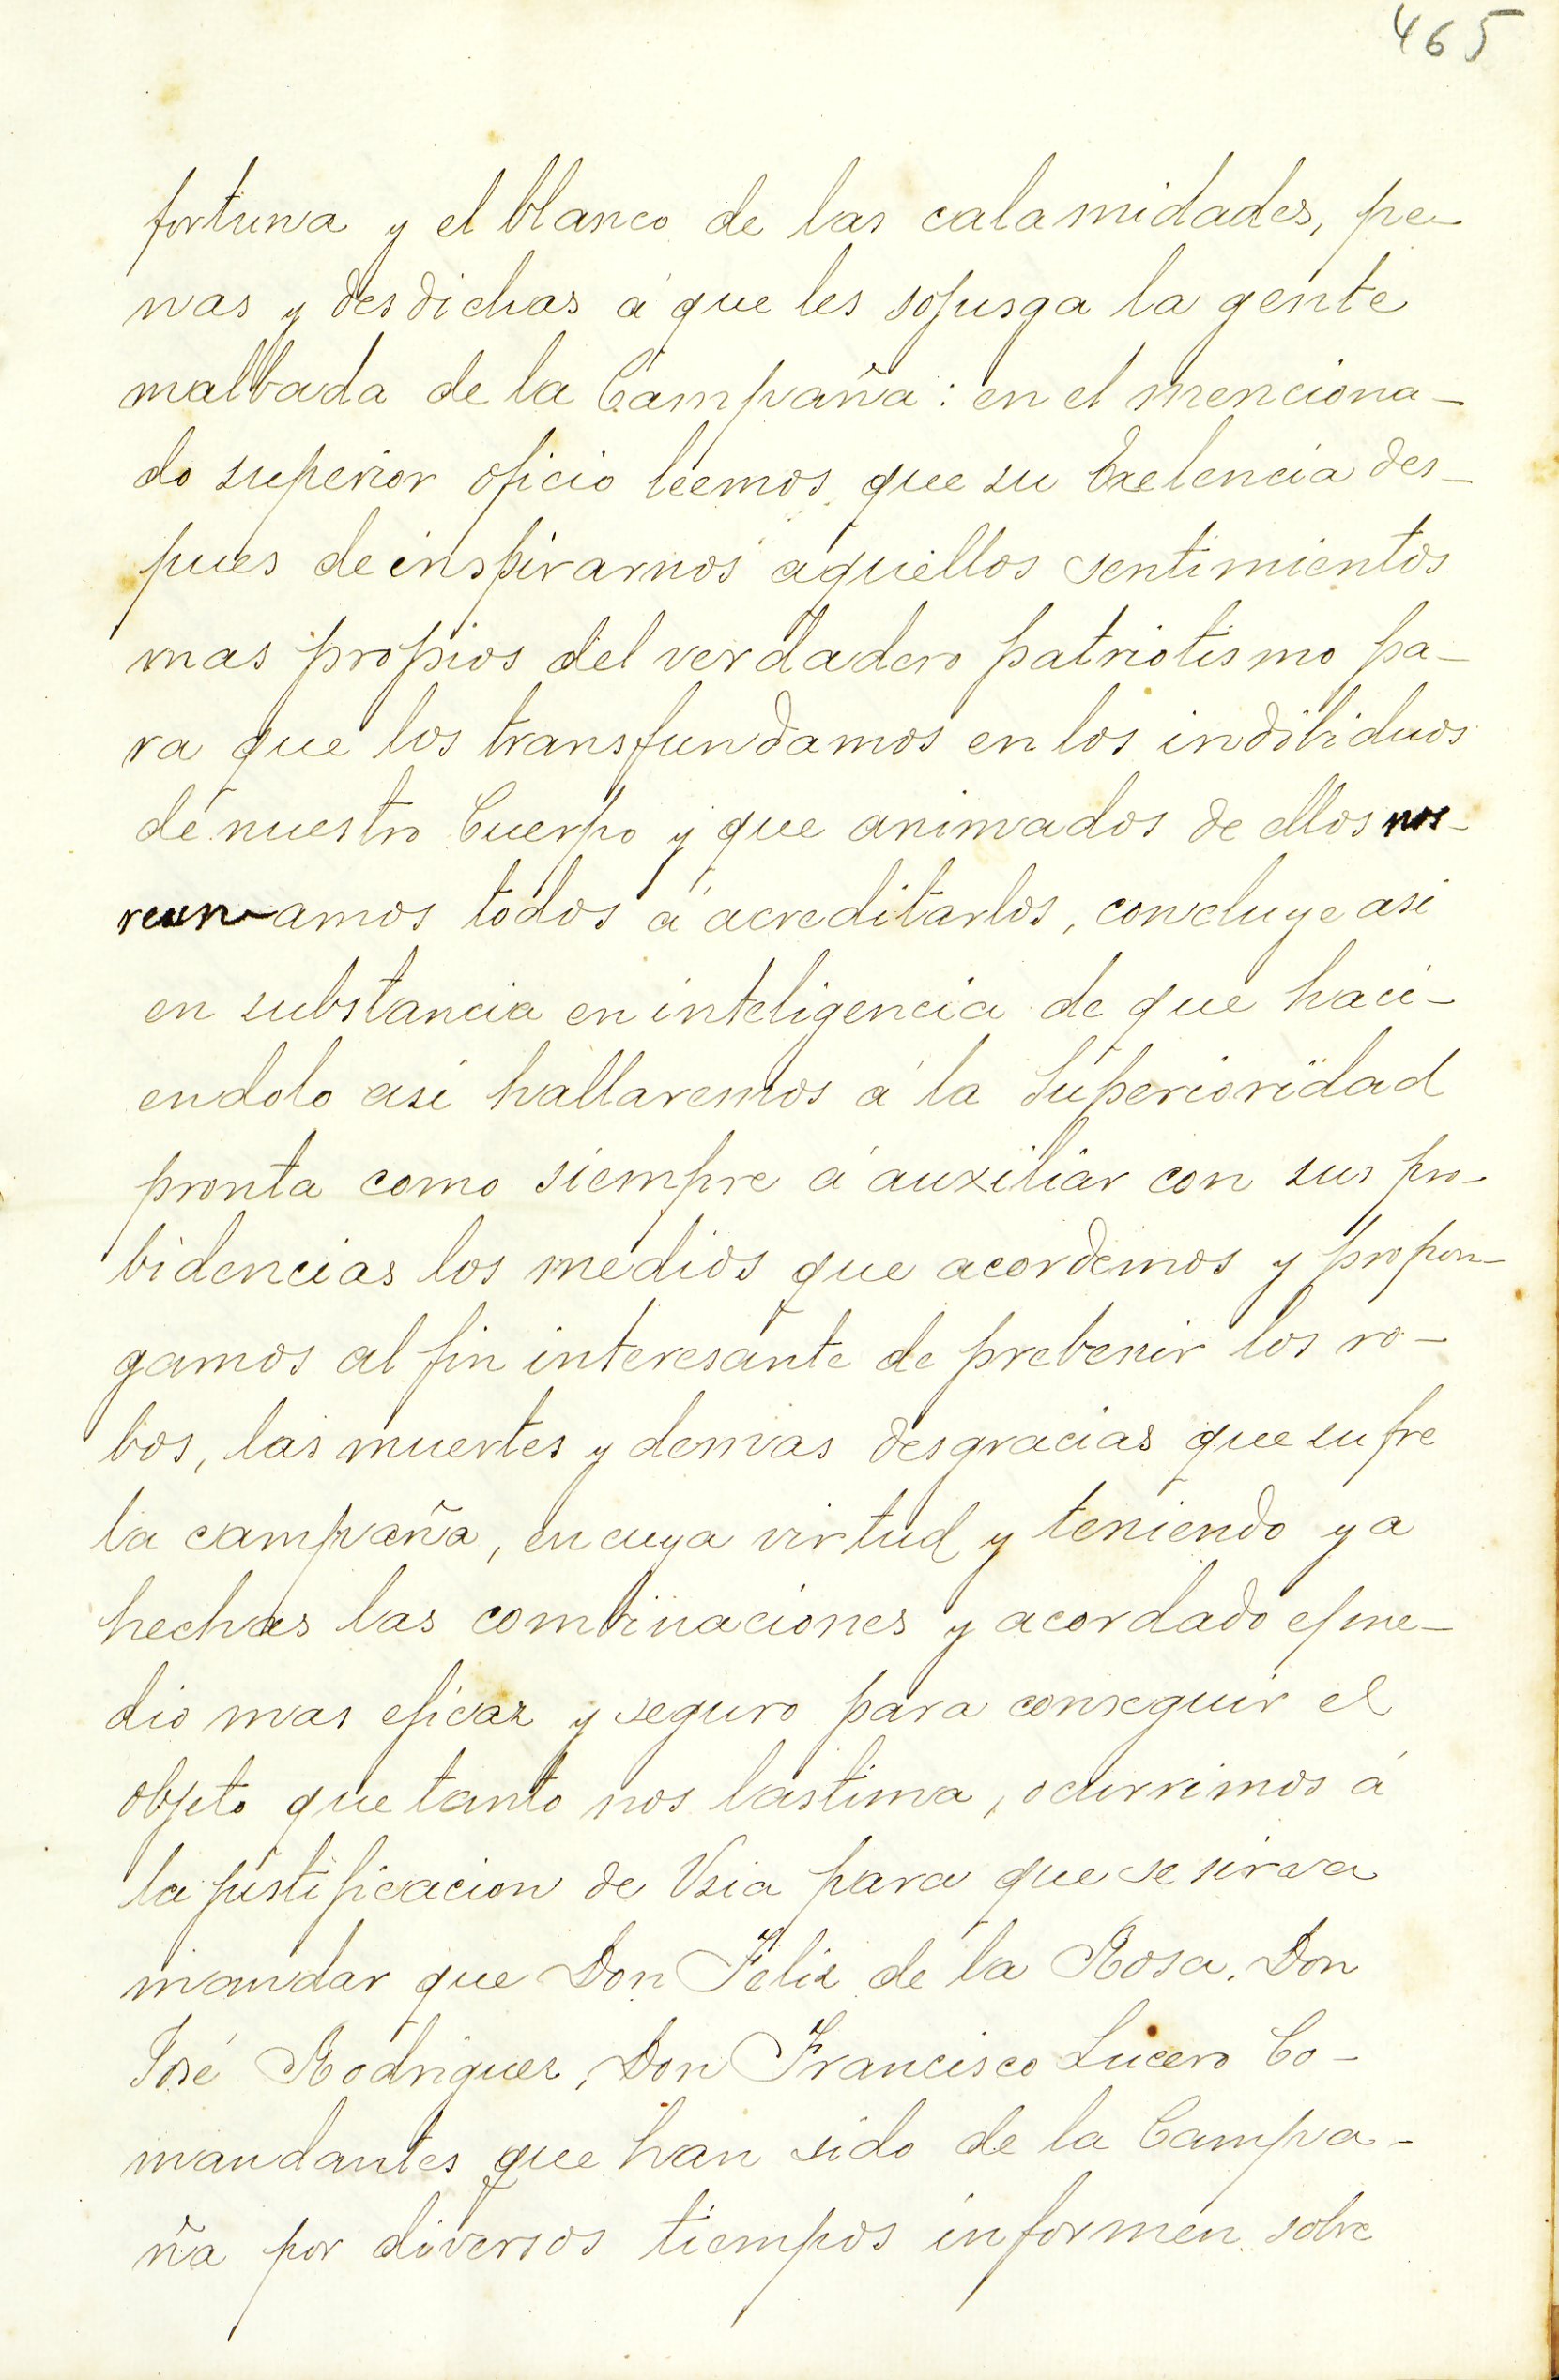 465
fortuna y el blanco de las calamidades, pe-
nas y desdichas á que les sojusga la gente
malbada de la Campaña: en el menciona-
do superior oficio leemos que su Exelencia des-
pues de inspirarnos aquellos sentimientos
mas propios del verdadero patriotismo pa-
ra que los transfundamos en los indibiduos
de nuestro Cuerpo y que animados de ellos nos
reunamos todos á acreditarlos, concluye asi
en substancia en inteligencia de que haci-
endolo asi hallaremos á la Superioridad
pronta como siempre á auxiliar con sus pro-
bidencias los medios que acordemos y propon-
gamos al fin interesante de prebenir los ro-
bos, las muertes y demas desgracias que sufre
la campaña, en cuya virtud y teniendo ya
hechas las combinaciones y acordado el me-
dio mas eficaz y seguro para conseguir el
objeto que tanto nos lastima, ocurrimos á
la justificacion de Vsia para que se sirva
mandar que Don Felix de la Rosa, Don
José Rodriguez, Don Francisco Lucero Co-
mandantes que han sido de la Campa-
ña por diversos tiempos informen sobre